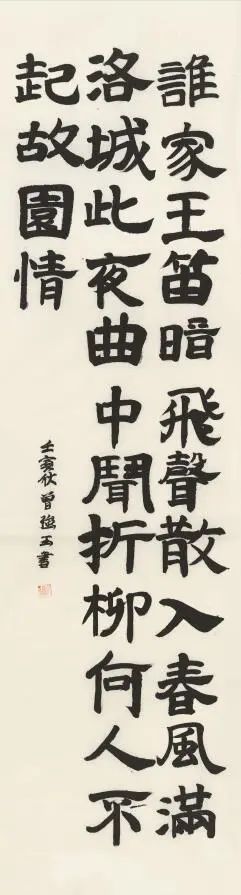 誰家王笛暗飛聲散入春風滿
洛城此夜曲中聞折柳何人不
起故園情
壬寅秋曾玉書